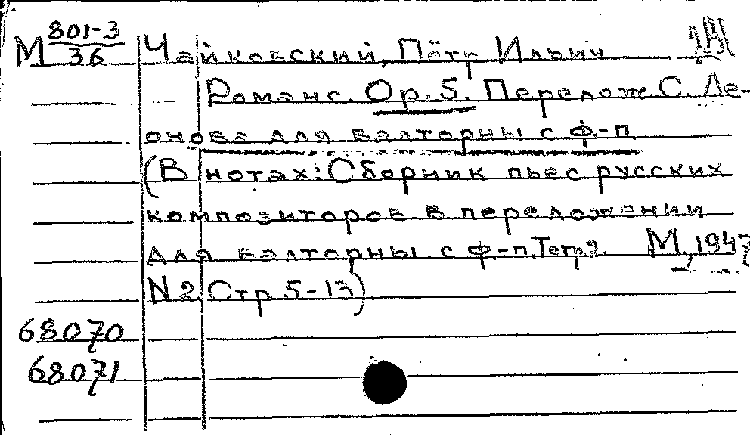 М 801-3/36 Чайковский, Пётр Ильич
Романс. Ор. 5. Перелож. С. Ле-
онова для валторны с ф-п.
(В нотах: Сборник пьес русских
композиторов в переложении
для валторны с ф-п. Тетр. М, 1947
N 2 Стр. 5-13)
68070
68071